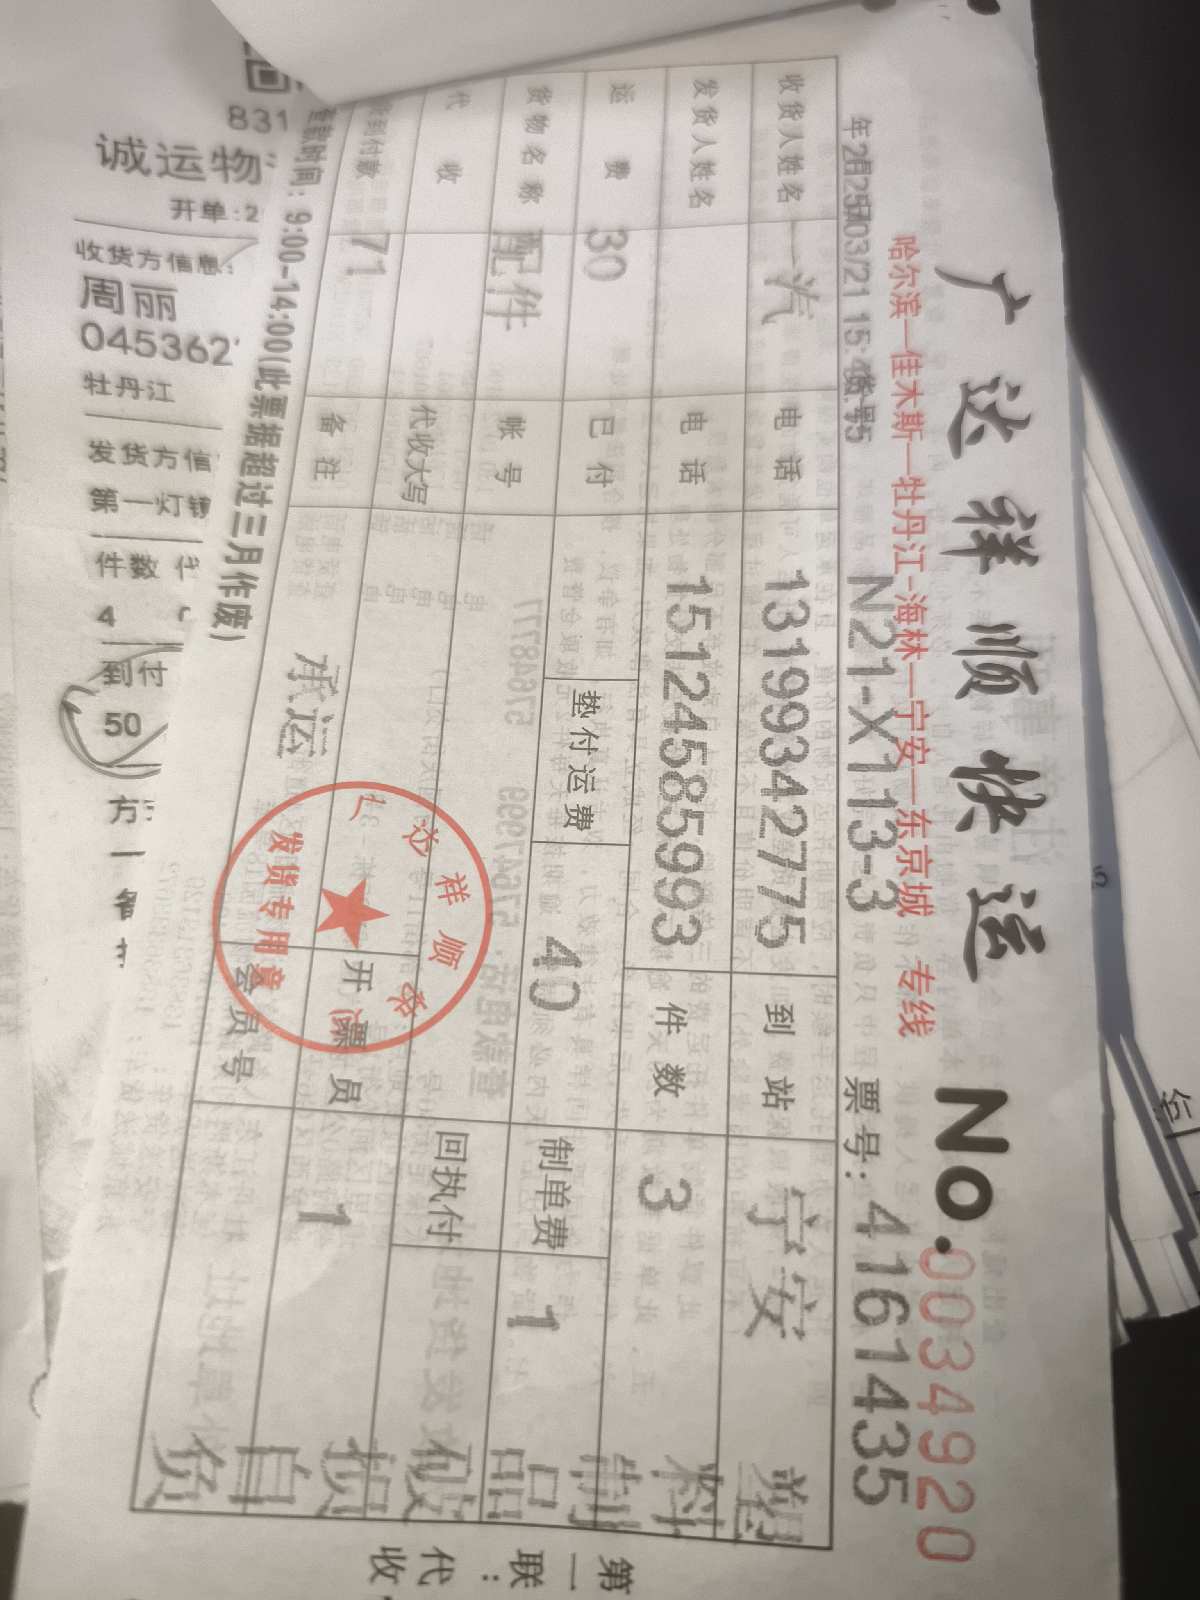 广达祥顺快运 No. 0034920
哈尔滨—佳木斯—牡丹江-海林—宁安—东京城 专线
N21-X113-3 票号: 4161435
收货人姓名 一汽 电话 13199342775 到站 宁安
发货人姓名 电话 15124585993 件数 3
运费 30 已付 垫付运费 40 制单费 1
货物名称 配件 帐号
代收 代收大写 回执付
到付款 71 备注 承运 开票员 1
会员号
塑料制品破损自负
广达祥顺
发货专用章
时间: 9:00-14:00(此票据超过三月作废)
第一联:代收
831
诚运物
开单:2
收货方信息:
周丽
045362
牡丹江
发货方信
第一灯
件数 代
4
到付
50